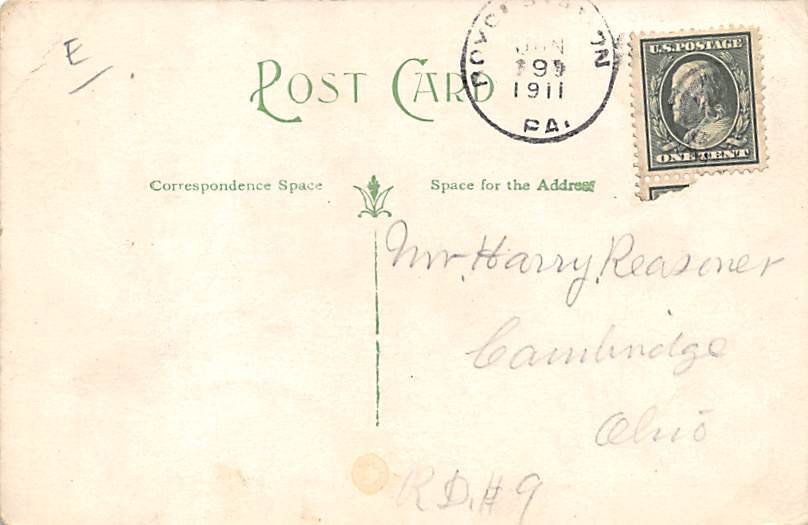 E
POST CARD
JAN
1911
PA.
U.S. POSTAGE
ONE CENT
Correspondence Space
Space for the Address
Mr. Harry Reasoner
Cambridge
Ohio
R.D. # 9